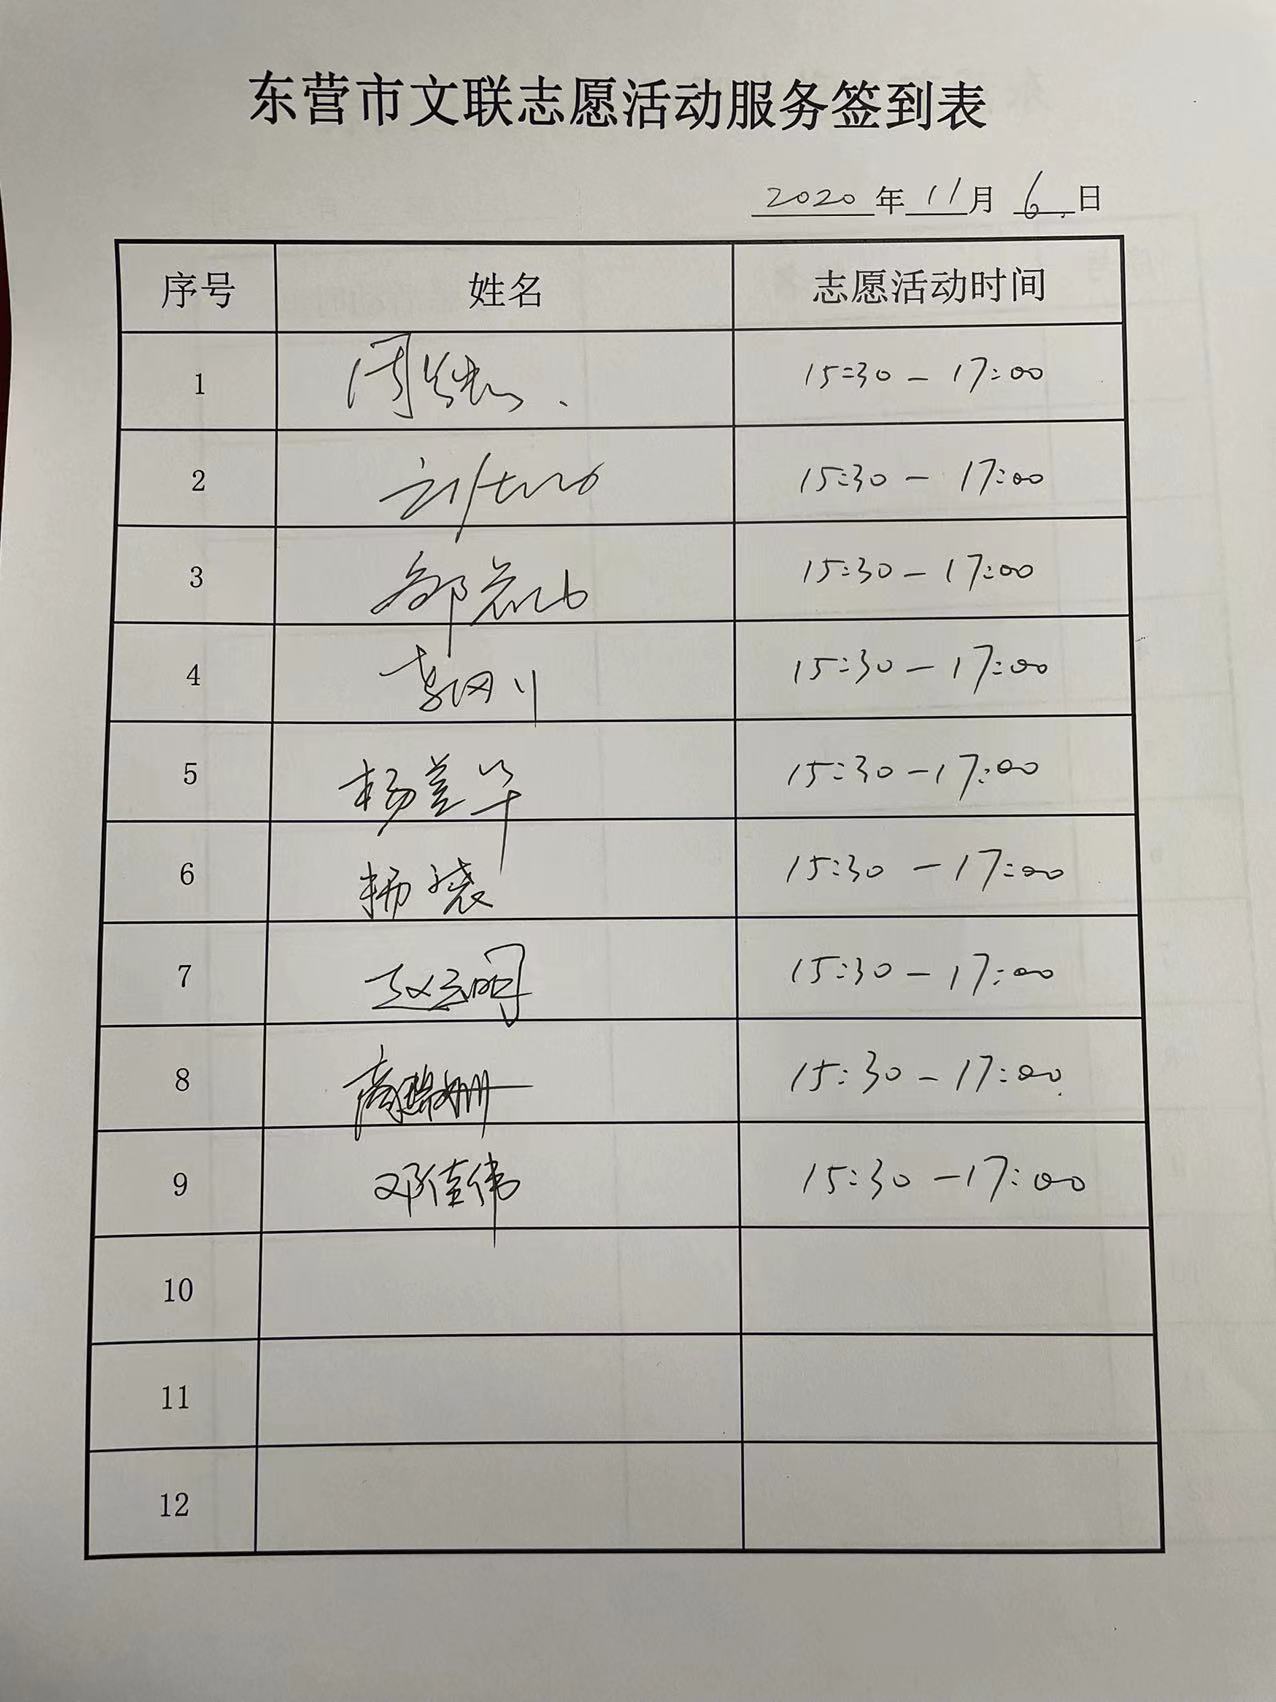 东营市文联志愿活动服务签到表
2020年11月6日
序号 姓名 志愿活动时间
1 周 15:30-17:00
2 刘 15:30-17:00
3 15:30-17:00
4 15:30-17:00
5 杨 华 15:30-17:00
6 杨 15:30-17:00
7 赵云明 15:30-17:00
8 15:30-17:00
9 邓佳伟 15:30-17:00
10
11
12